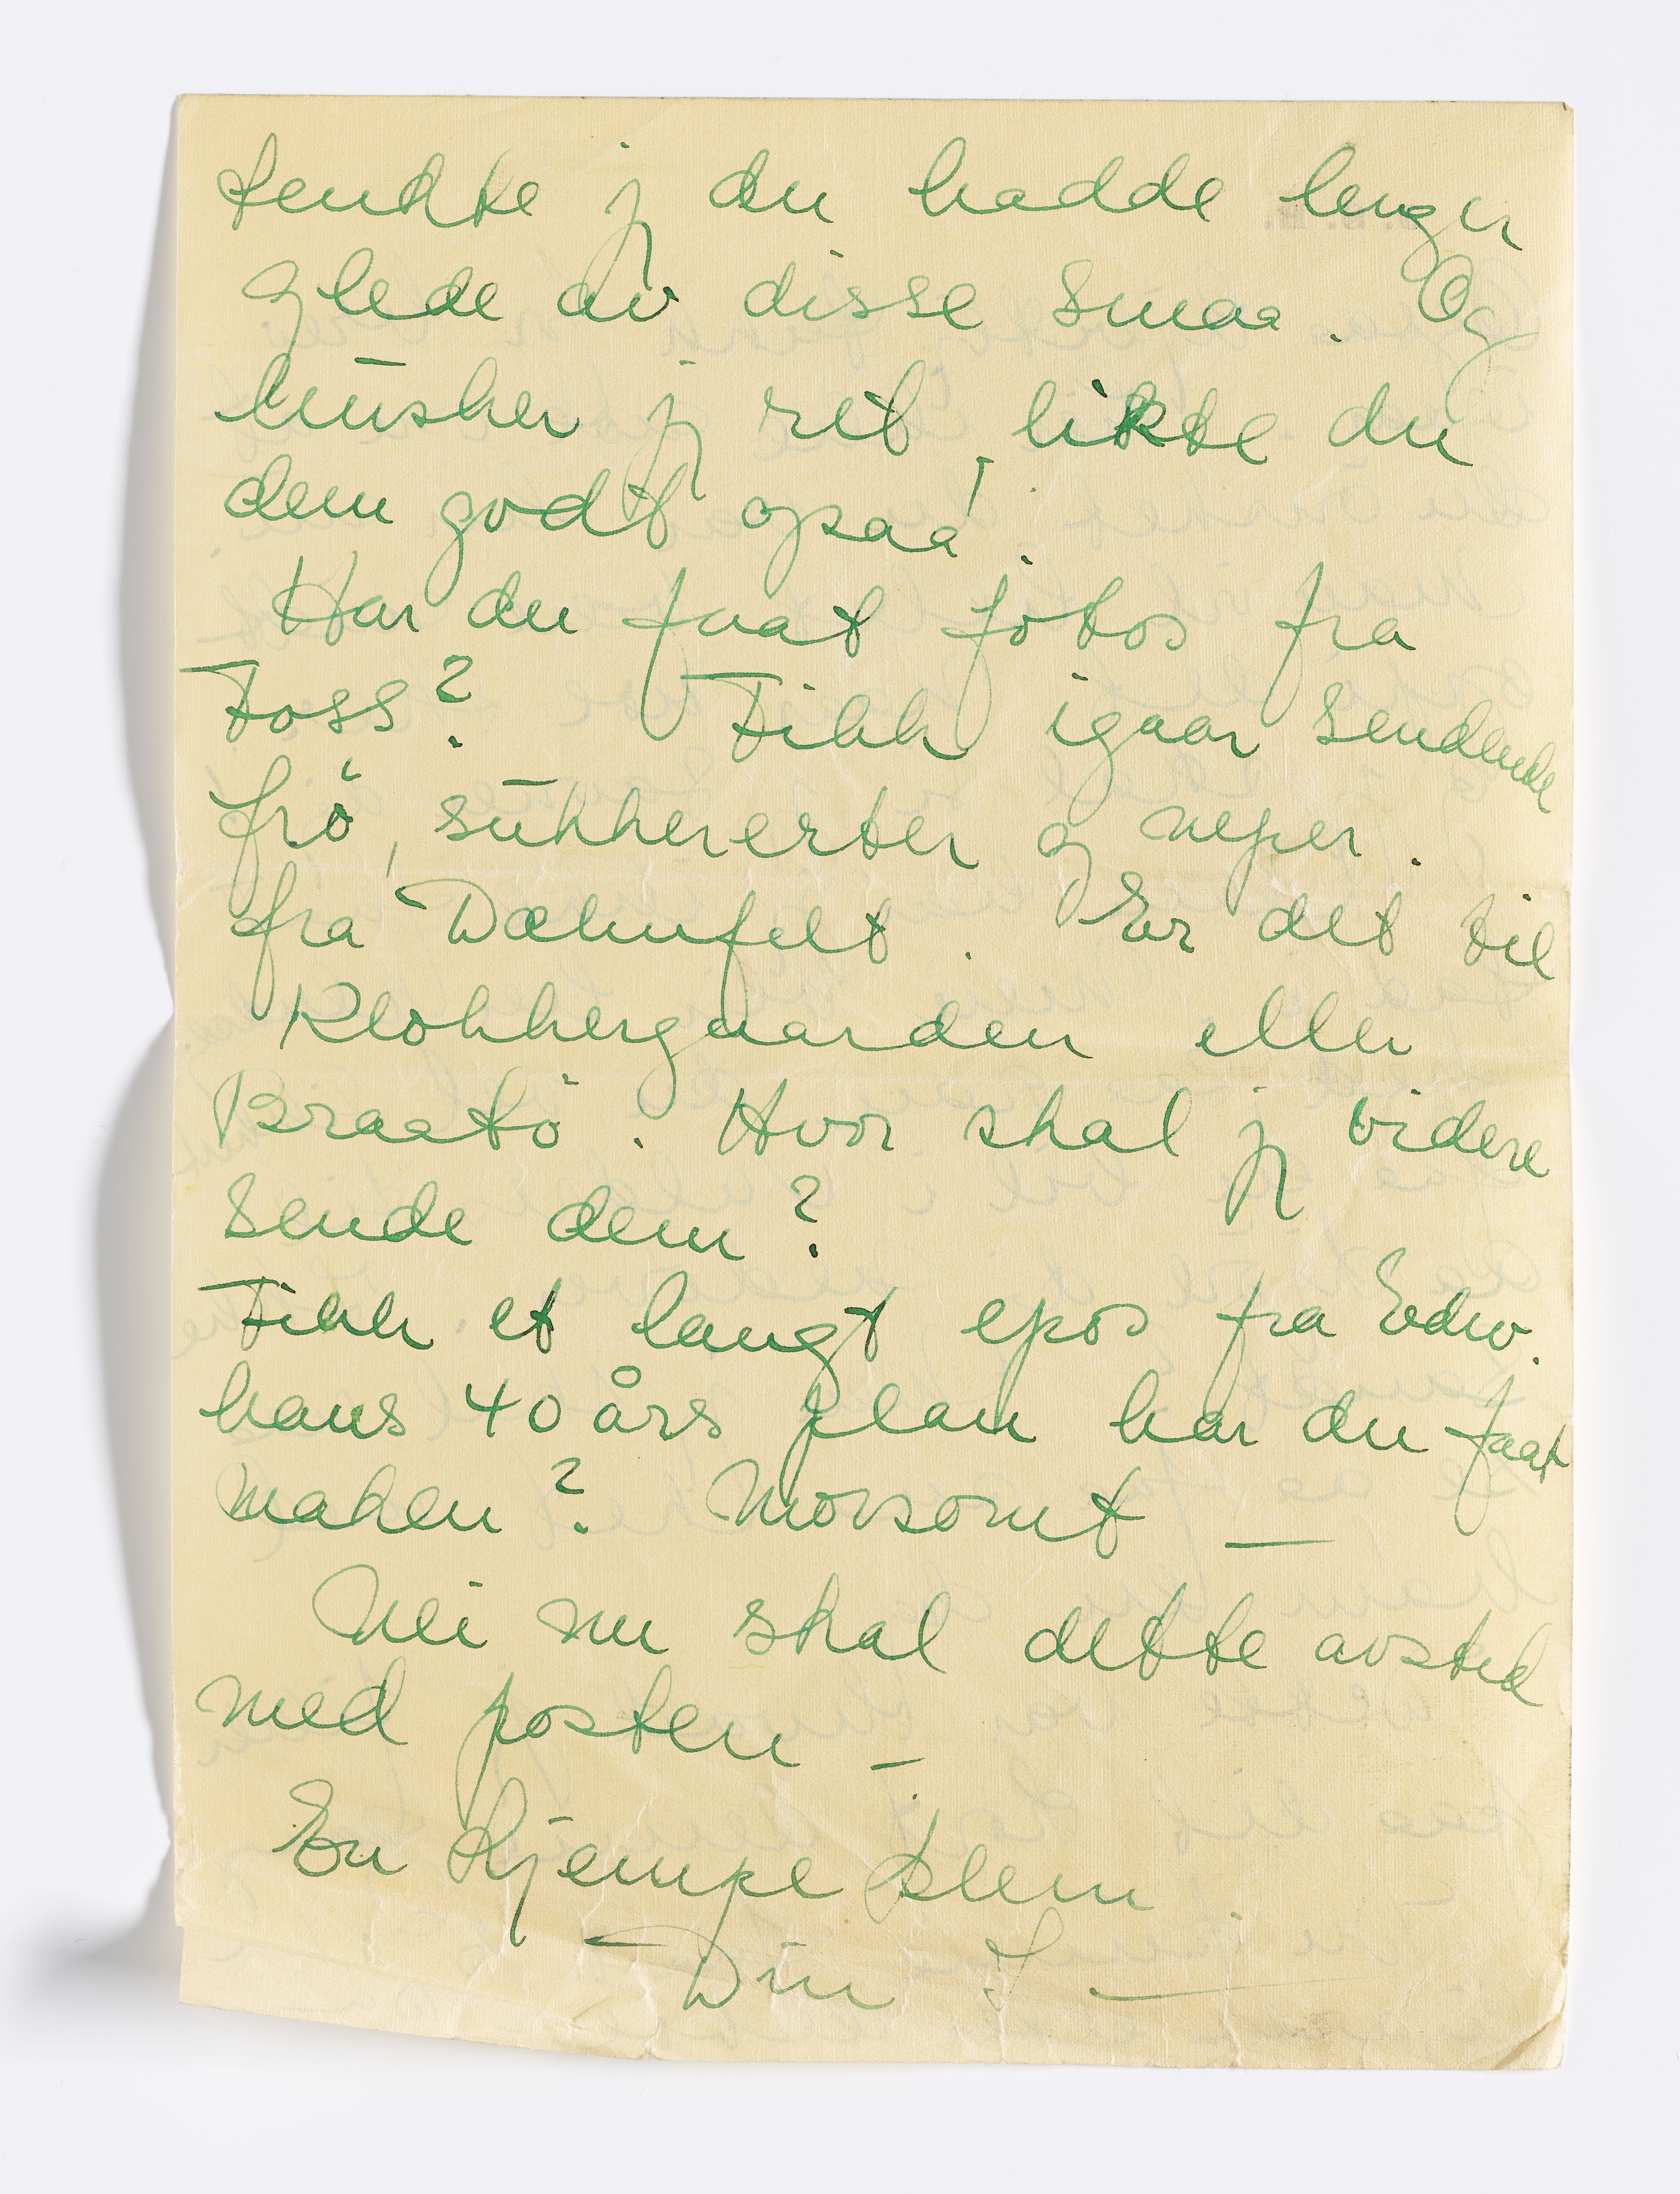 tenkte j du hadde lenger
glede av disse smaa. Og
husker j ret, likte du
dem godt ogsaa!.
Har du faat fotos fra
Foss? Fikk igaar sendende
frö, sukkererter og neper.
fra Dæhnfelt. Er det til
Klokkergaarden eller
Braatö. Hvor skal j videre
sende dem?
Fikk et langt epos fra Edw.
hans 40 års plan har du faat
maken? Morsomt —
Nei nu skal dette avsted
med posten —
En kjempe klem.
Din